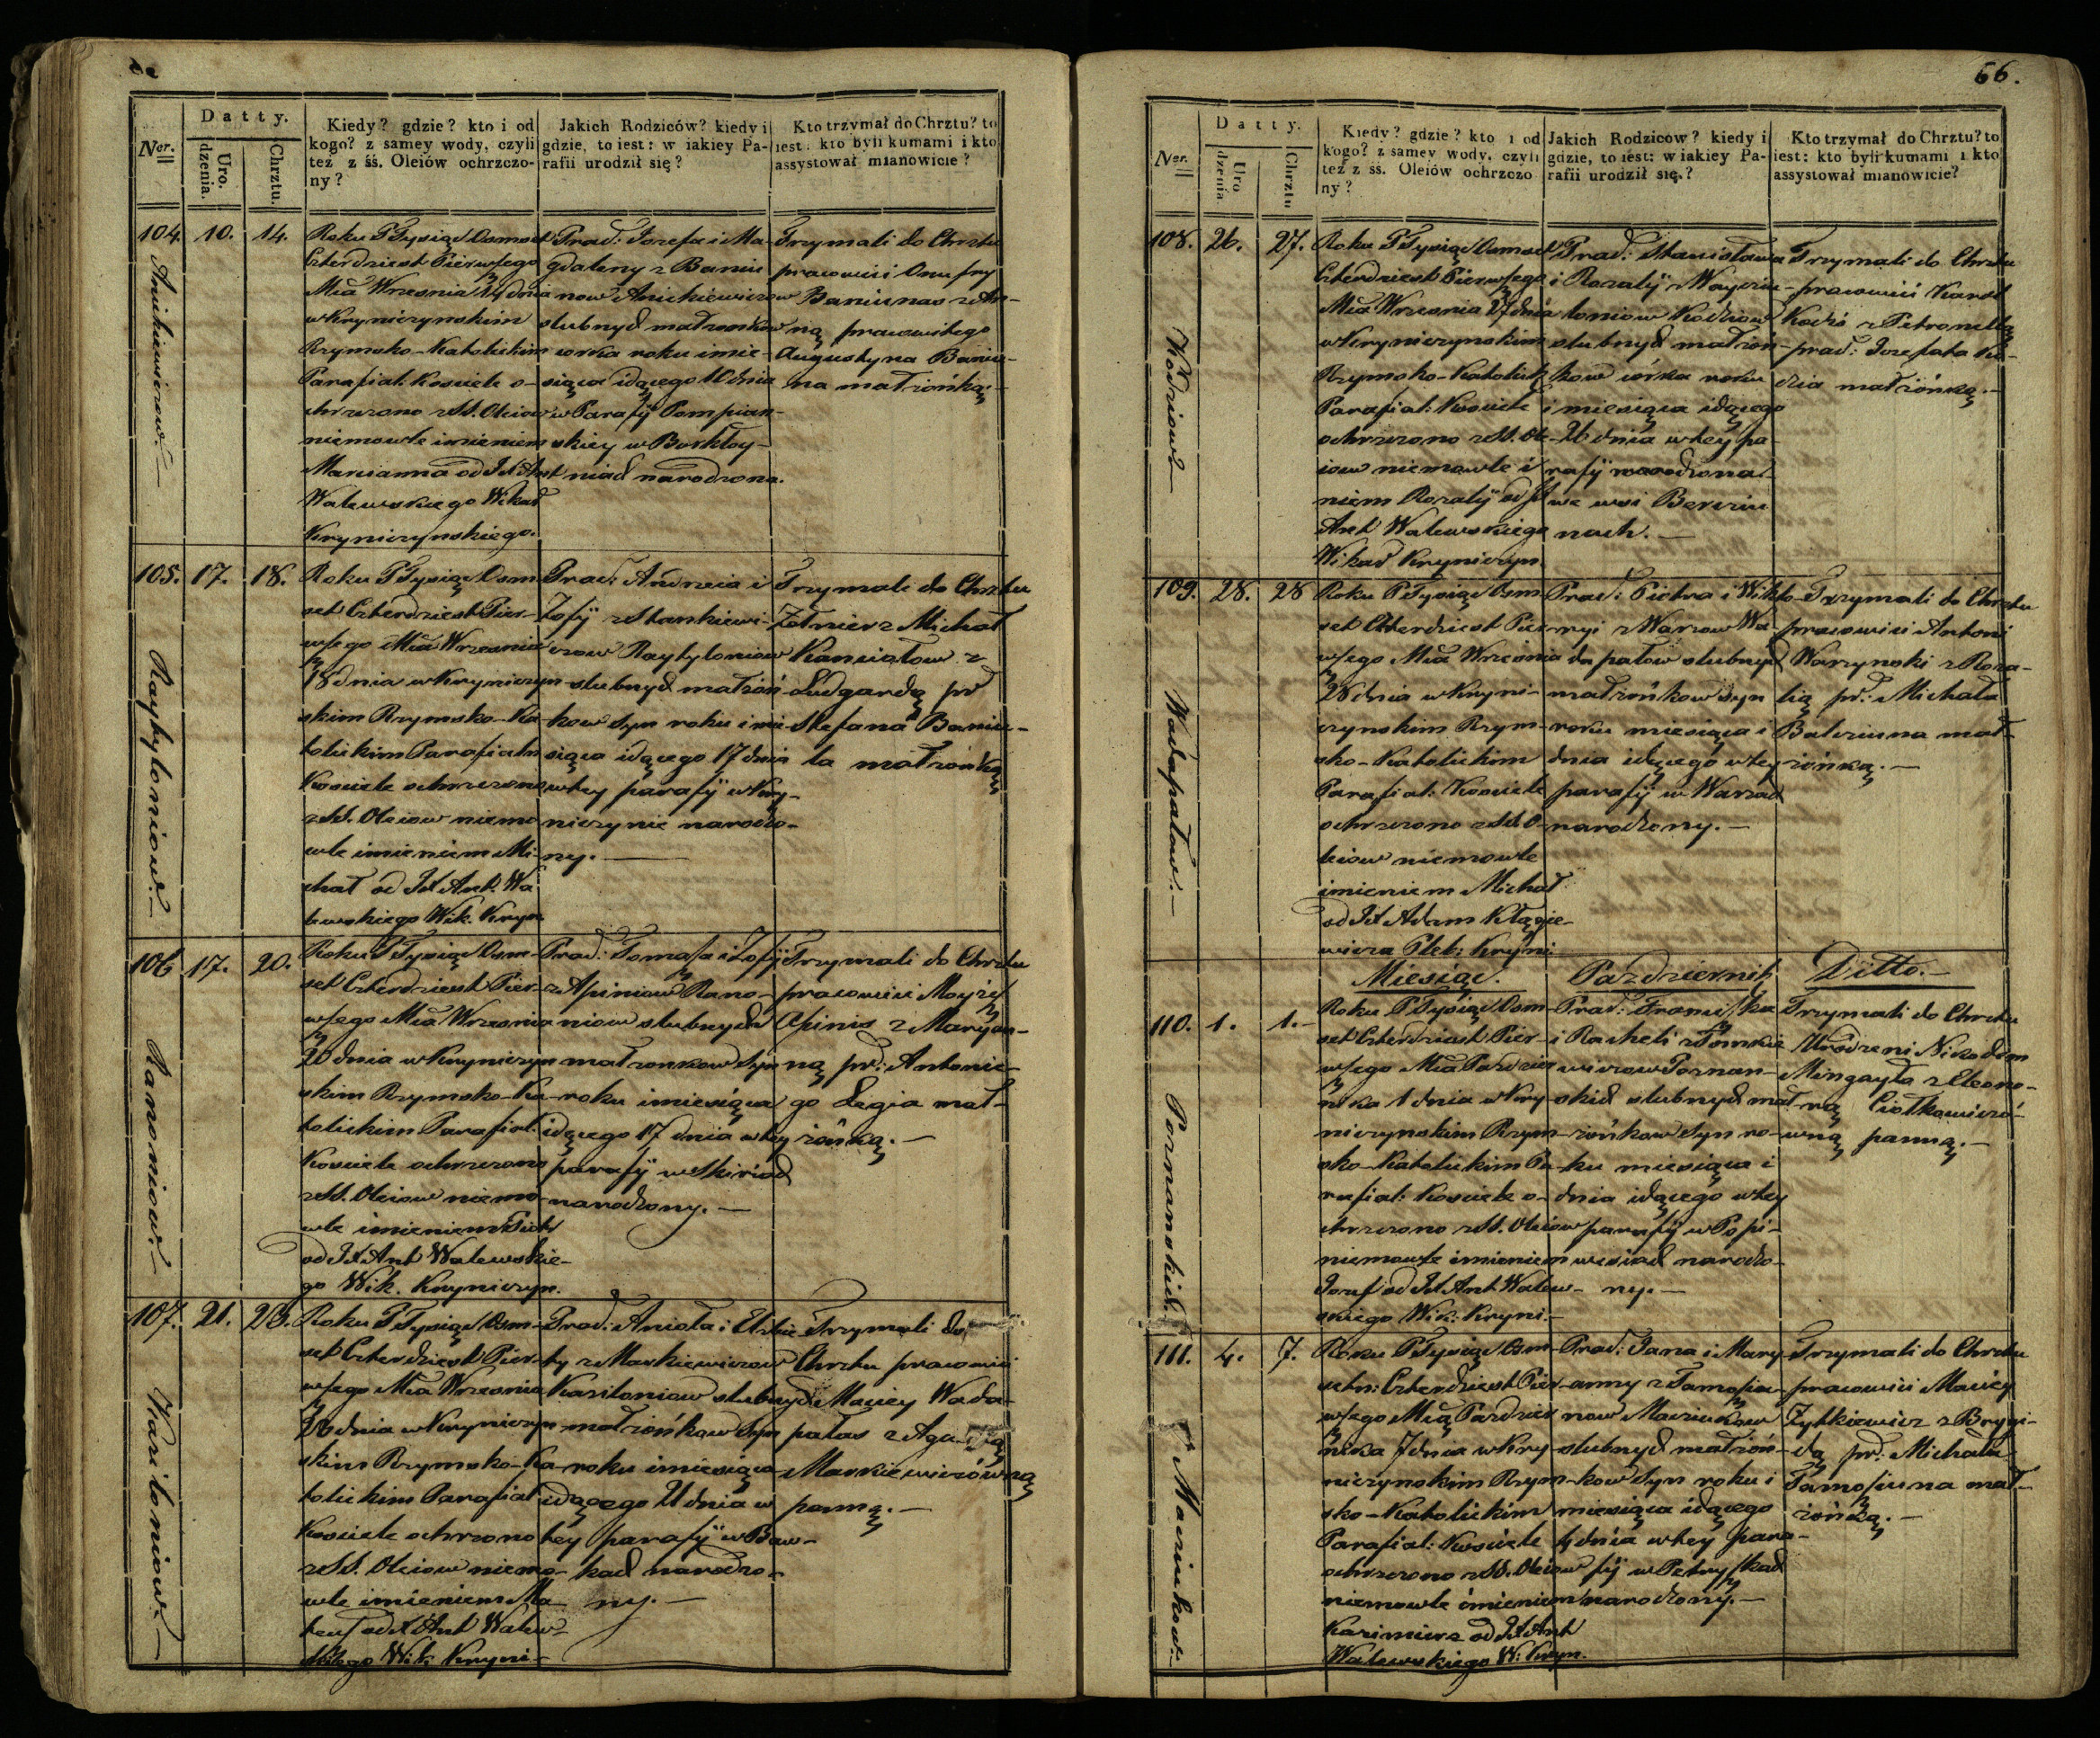 66.
Ner.
Datty.
Uro.
dzenia.
Chrztu.
Kiedy? gdzie? kto i od
kogo? z samey wody, czyli
też z śś. Oleiów ochrzczo-
ny?
Jakich Rodziców? kiedy i
gdzie, to iest: w iakiey Pa-
rafii urodził się?
Kto trzymał do Chrztu? to
iest: kto byli kumami i kto
assystował mianowicie?
104. 10. 14.
Anickiewiczow.
Roku P Tysiąc Osmset
Czterdziest Pierwszego
Mca Wrzesnia 14 dnia
w Kryniczynskim
Rzymsko-Katolickim
Parafial: Kosciele o-
chrzczono z SS. Oleiow
niemowle imieniem
Marcianna od JX Ant
Walewskiego Wikar
Kryniczynskiego.
Prac: Jozefa i Ma-
gdaleny z Baniu
now Anickiewiczow
slubnych małżonkow
corka roku i mie-
siąca idącego 10 dnia
w Parafij Pompian-
skiey w Burkłoy-
niach narodzona.
Trzymali do Chrztu
pracowici Onufry
Baniunas z An-
ną pracowitego
Augustyna Baniu-
na małżonką.
105. 17. 18.
Raytyloniow.
Roku P Tysiąc Osm
set Czterdziest Pier-
wszego Mca Wrzesnia
18 dnia w Kryniczyn-
skim Rzymsko-Ka-
tolickim Parafialn
Kosciele ochrzczono
z SS. Oleiow niemo
wle imieniem Mi-
chał od JX Ant. Wa
lewskiego Wik. Kryn
Prac: Andrzeia i
Zofij z Stankiewi-
czow Raytyloniow
slubnych małżoń-
kow syn roku i mie
siąca idącego 17 dnia
w tey parafij w Kry-
niczynie narodzo-
ny.
Trzymali do Chrztu
Żołnierz Michał
Kanciałow z
Ludgardą pr
Stefana Baniu-
la małżonką
106 17. 20.
Ranoniow.
Roku P Tysiąc Osm-
set Czterdziest Pier-
wszego Mca Wrzesnia
20 dnia w Krynicyzn
skim Rzymsko-Ka-
tolickim Parafial.
Kosciele ochrzczono
z SS. Oleiow niemo
wle imieniem Piotr
od JX Ant Walewskie-
go Wik. Krynicyzn.
Prac: Tomasza i Zofij
z Apiniow Rano-
niow slubnych
małżonkow syn
roku i miesiąca
idącego 17 dnia w tey
parafij w Skiriach
narodzony.
Trzymali do Chrztu
pracowici Moyżesz
Apinis z Maryan-
ną pr: Antonie-
go Legia mał-
żonką.
107. 21. 23.
Kariloniow.
Roku P Tysiąc Osm-
set Czterdziest Pier-
wszego Mca Wrzesnia
23 dnia w Krynicyzn
skim Rzymsko-Ka
tolickim Parafial
Kosciele ochrzczono
z SS. Oleiow niemo-
wle imieniem Ma
teusz od JX Ant Walew-
skiego Wik Kryni-
Prac: Anioła i Elzbie
ty z Markiewiczow
Kariloniow slubnych
małżońkow syn
roku i miesiąca
idącego 21 dnia w
tey parafij w Baw-
kach narodzo-
ny.
Trzymali do
Chrztu pracowici
Maciey Wada-
pałas z Aga
Markiewiczówną
panną.
Ner.
Datty.
Uro
dzenia
Chrztu
Kiedy? gdzie? kto i od
kogo? z samey wody, czyli
też z śś. Oleiów ochrzczo
ny?
Jakich Rodziców? kiedy i
gdzie, to iest: w iakiey Pa-
rafii urodził się?
Kto trzymał do Chrztu? to
iest: kto byli kumami i kto
assystował mianowicie?
108. 26. 27.
Kodziow
Roku P Tysiąc Osmset
Czterdziest Pierwszego
Mca Wrzesnia 27 dnia
w Krynicynskim
Rzymsko-Katolick
Parafial: Kosciele
ochrzczono z SS. Ole-
iow niemowle i
niem Rozalij od JX
Ant Walewskiego
Wikar Krynicyzn
Prac: Stanisława
i Rozalij z Wayciu-
loniow Kodziow
slubnych małżon-
kow córka roku
i miesiąca idącego
26 dnia w tey pa
rafij narodzona
we wsi Berciu
nach.
Trzymali do Chrztu
pracowici Karol
Kodzis z Petronellą
prac: Jozefata Ko-
dzia małżonką.
109. 28. 28
Wadapałow.
Roku P Tysiąc Osm-
set Czterdziest Pier
wszego Mca Wrzesnia
28 dnia w Kryni-
czynskim Rzym-
sko-Katolickim
Parafial: Kosciele
ochrzczono z SS. O-
leiow niemowle
imieniem Michał
od JX Adam Kłągie-
wicza Pleb: Kryni
Prac: Piotra i Wikto-
ryi z Warzow Wa
dapałow slubnych
małżońkow syn
roku miesiąca i
dnia idącego w tey
parafij w Warzach
narodzony.
Trzymali do Chrztu
pracowici Antoni
Warzynski z Roza-
lią pr: Michała
Balciuna mał-
żonką.
Miesiąc. Pazdziernik Ditto.
110. 1. 1.
Poznanskich
Roku P Tysiąc Osm-
set Czterdziest Pier-
wszego Mca Pazdzier
nika 1 dnia w Kry-
niczynskim Rzym-
sko-Katolickim Pa-
rafial: Kosciele o-
chrzczono z SS. Oleiow
niemowle imieniem
Jozef od JX Ant Walew-
skiego Wik: Kryni.
Prac: Franciszka
i Racheli z Tomkie
wiczow Poznan-
skich slubnych mał
żońkow syn ro-
ku miesiąca i
dnia idącego w tey
parafij w Popi-
wesiach narodzo-
ny.
Trzymali do Chrztu
Urodzeni Nikodem
Mingayło z Eleono-
rą Ciołkowiczó-
wną panną.
111. 4. 7.
Maciukow.
Roku P Tysiąc Osm-
setn: Czterdziest Pier
wszego Mcą Pazdzier
nika 7 dnia w Kry-
niczynskim Rzym-
sko-Katolickim
Parafial: Kosciele
ochrzczono z SS. Oleiow
niemowle imieniem
Kazimierz od JX Ant
Walewskiego W: Kryn.
Prac: Jana i Mary-
anny z Tamosiu-
now Maciukow
slubnych małżoń-
kow syn roku i
miesiąca idącego
4 dnia w tey para-
fij w Petryszkach
narodzony.
Trzymali do Chrztu
pracowici Maciey
Zytkiewicz z Brygi-
dą pr: Michała
Tamosziuna mał-
żonką.